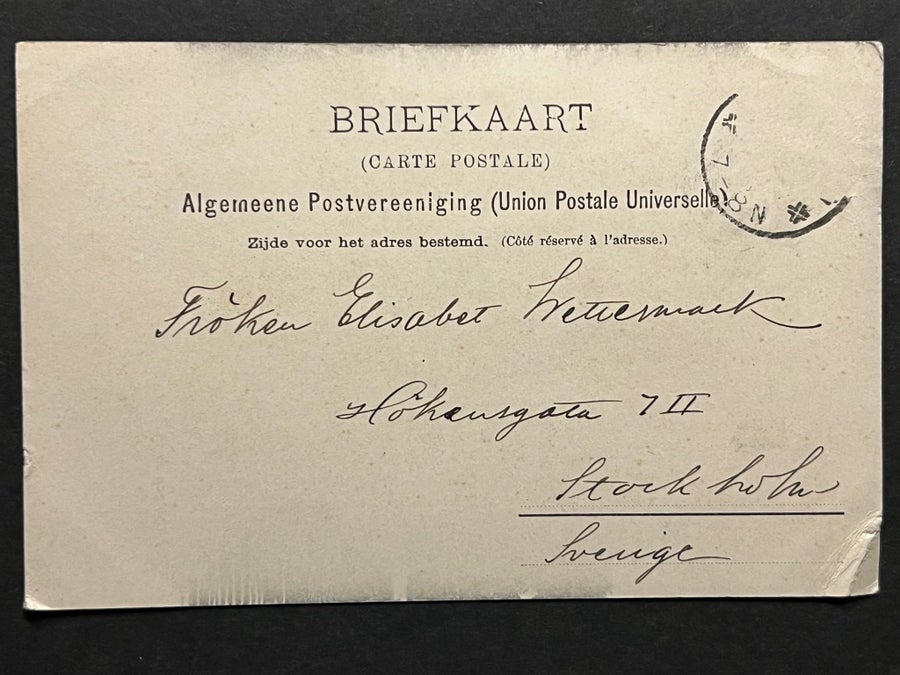 BRIEFKAART
(CARTE POSTALE)
Algemeene Postvereeniging (Union Postale Universelle
Zijde voor het adres bestemd. (Côté réservé à l'adresse.)
7-8 N
Fröken Elisabet Wettermark
Hökensgata 7 II
Stockholm
Sverige